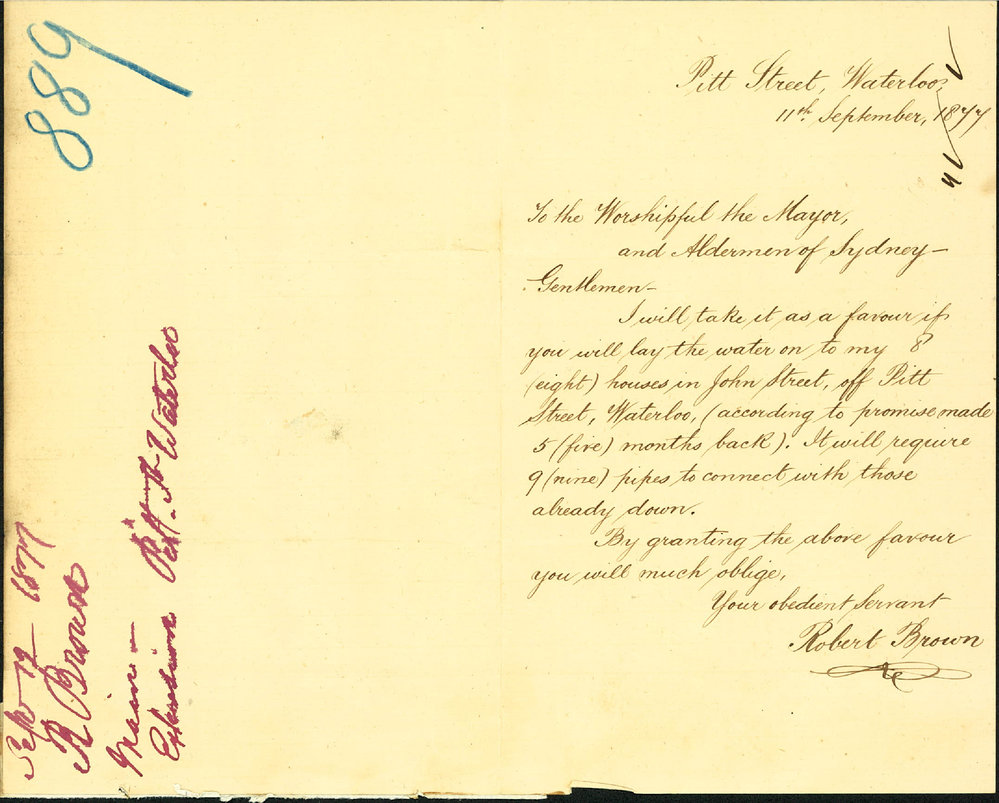 889
Sept 12 1877
R Brown
Main -
Extension Pitt St. Waterloo
Pitt Street, Waterloo,
11th September, 1877
To the Worshipful the Mayor,
and Aldermen of Sydney -
Gentlemen -
I will take it as a favour if
you will lay the water on to my 8
(eight) houses in John Street, off Pitt
Street, Waterloo, (according to promise made
5 (five) months back). It will require
9 (nine) pipes to connect with those
already down.
By granting the above favour
you will much oblige,
Your obedient Servant
Robert Brown